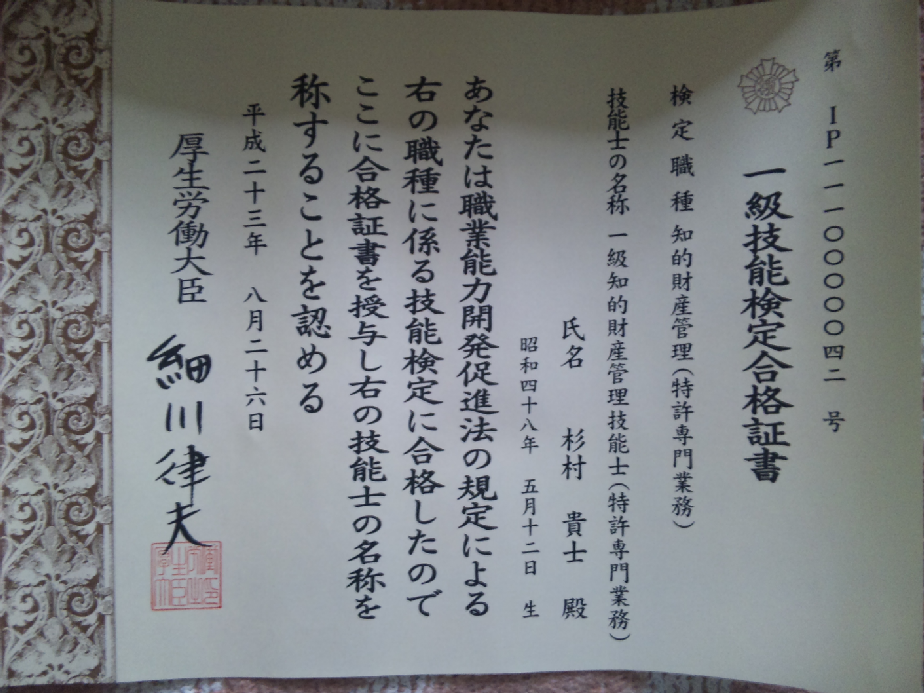 第 IP一一一〇〇〇〇〇四二 号
一級技能検定合格証書
検定職種 知的財産管理(特許専門業務)
技能士の名称 一級知的財産管理技能士(特許専門業務)
氏名 杉村 貴士 殿
昭和四十八年 五月十二日 生
あなたは職業能力開発促進法の規定による
右の職種に係る技能検定に合格したので
ここに合格証書を授与し右の技能士の名称を
称することを認める
平成二十三年 八月二十六日
厚生労働大臣 細川律夫